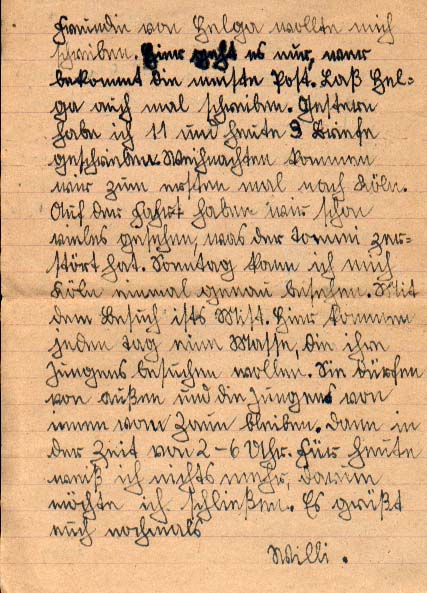 Freundin von Helga wollte mich
schreiben. Hier geht es nur, wer
bekommt die meiste Post. Laß Hel=
ga auch mal schreiben. Gestern
habe ich 11 und heute 9 Briefe
geschrieben. Weihnachten kommen
wir zum ersten mal nach Köln.
Auf der Fahrt haben wir schon
vieles gesehen, was der Tommi zer-
stört hat. Sonntag kann ich mich
Köln einmal genau besehen. Mit
dem Besuch ists Mist. Hier kommen
jeden Tag eine Masse, die ihre
Jungens besuchen wollen. Sie dürfen
von außen und die Jungens von
innen vom Zaun bleiben. Dann in
der Zeit von 2-6 Uhr. Für heute
weiß ich nichts mehr, darum
möchte ich schließen. Es grüßt
euch nochmals
Willi.